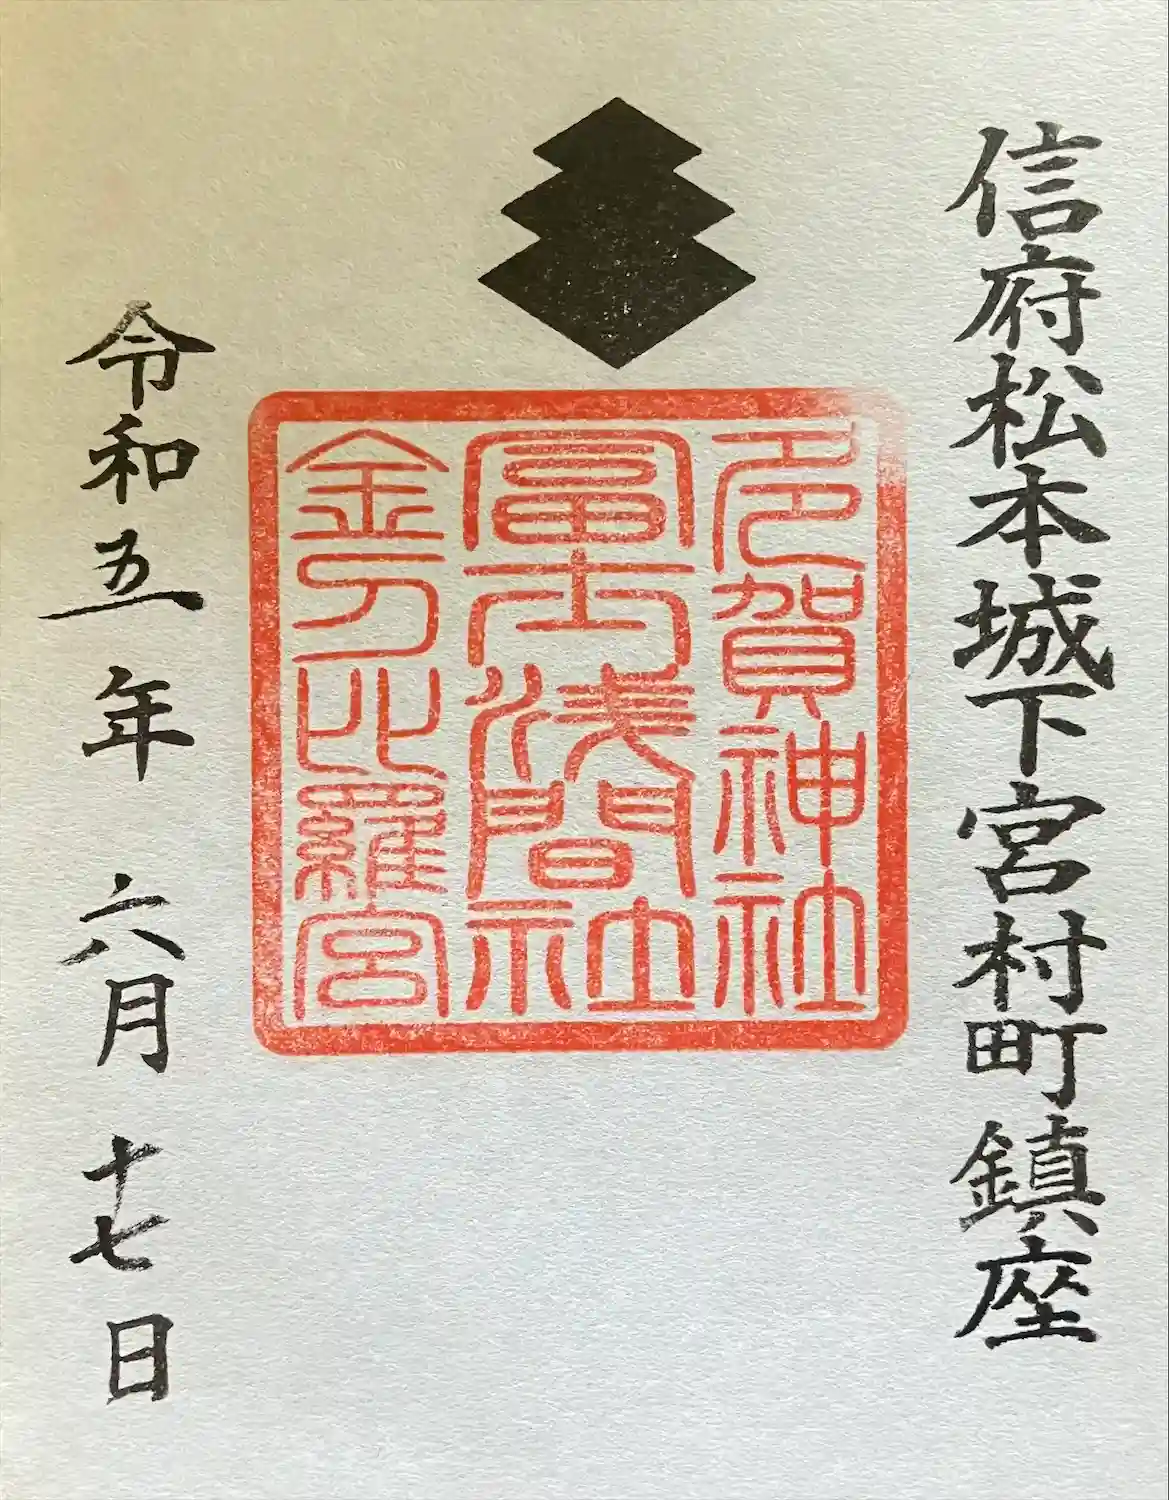 信府松本城下宮村町鎮座
多賀神社
富士浅間社
金刀比羅宮
令和五年六月十七日